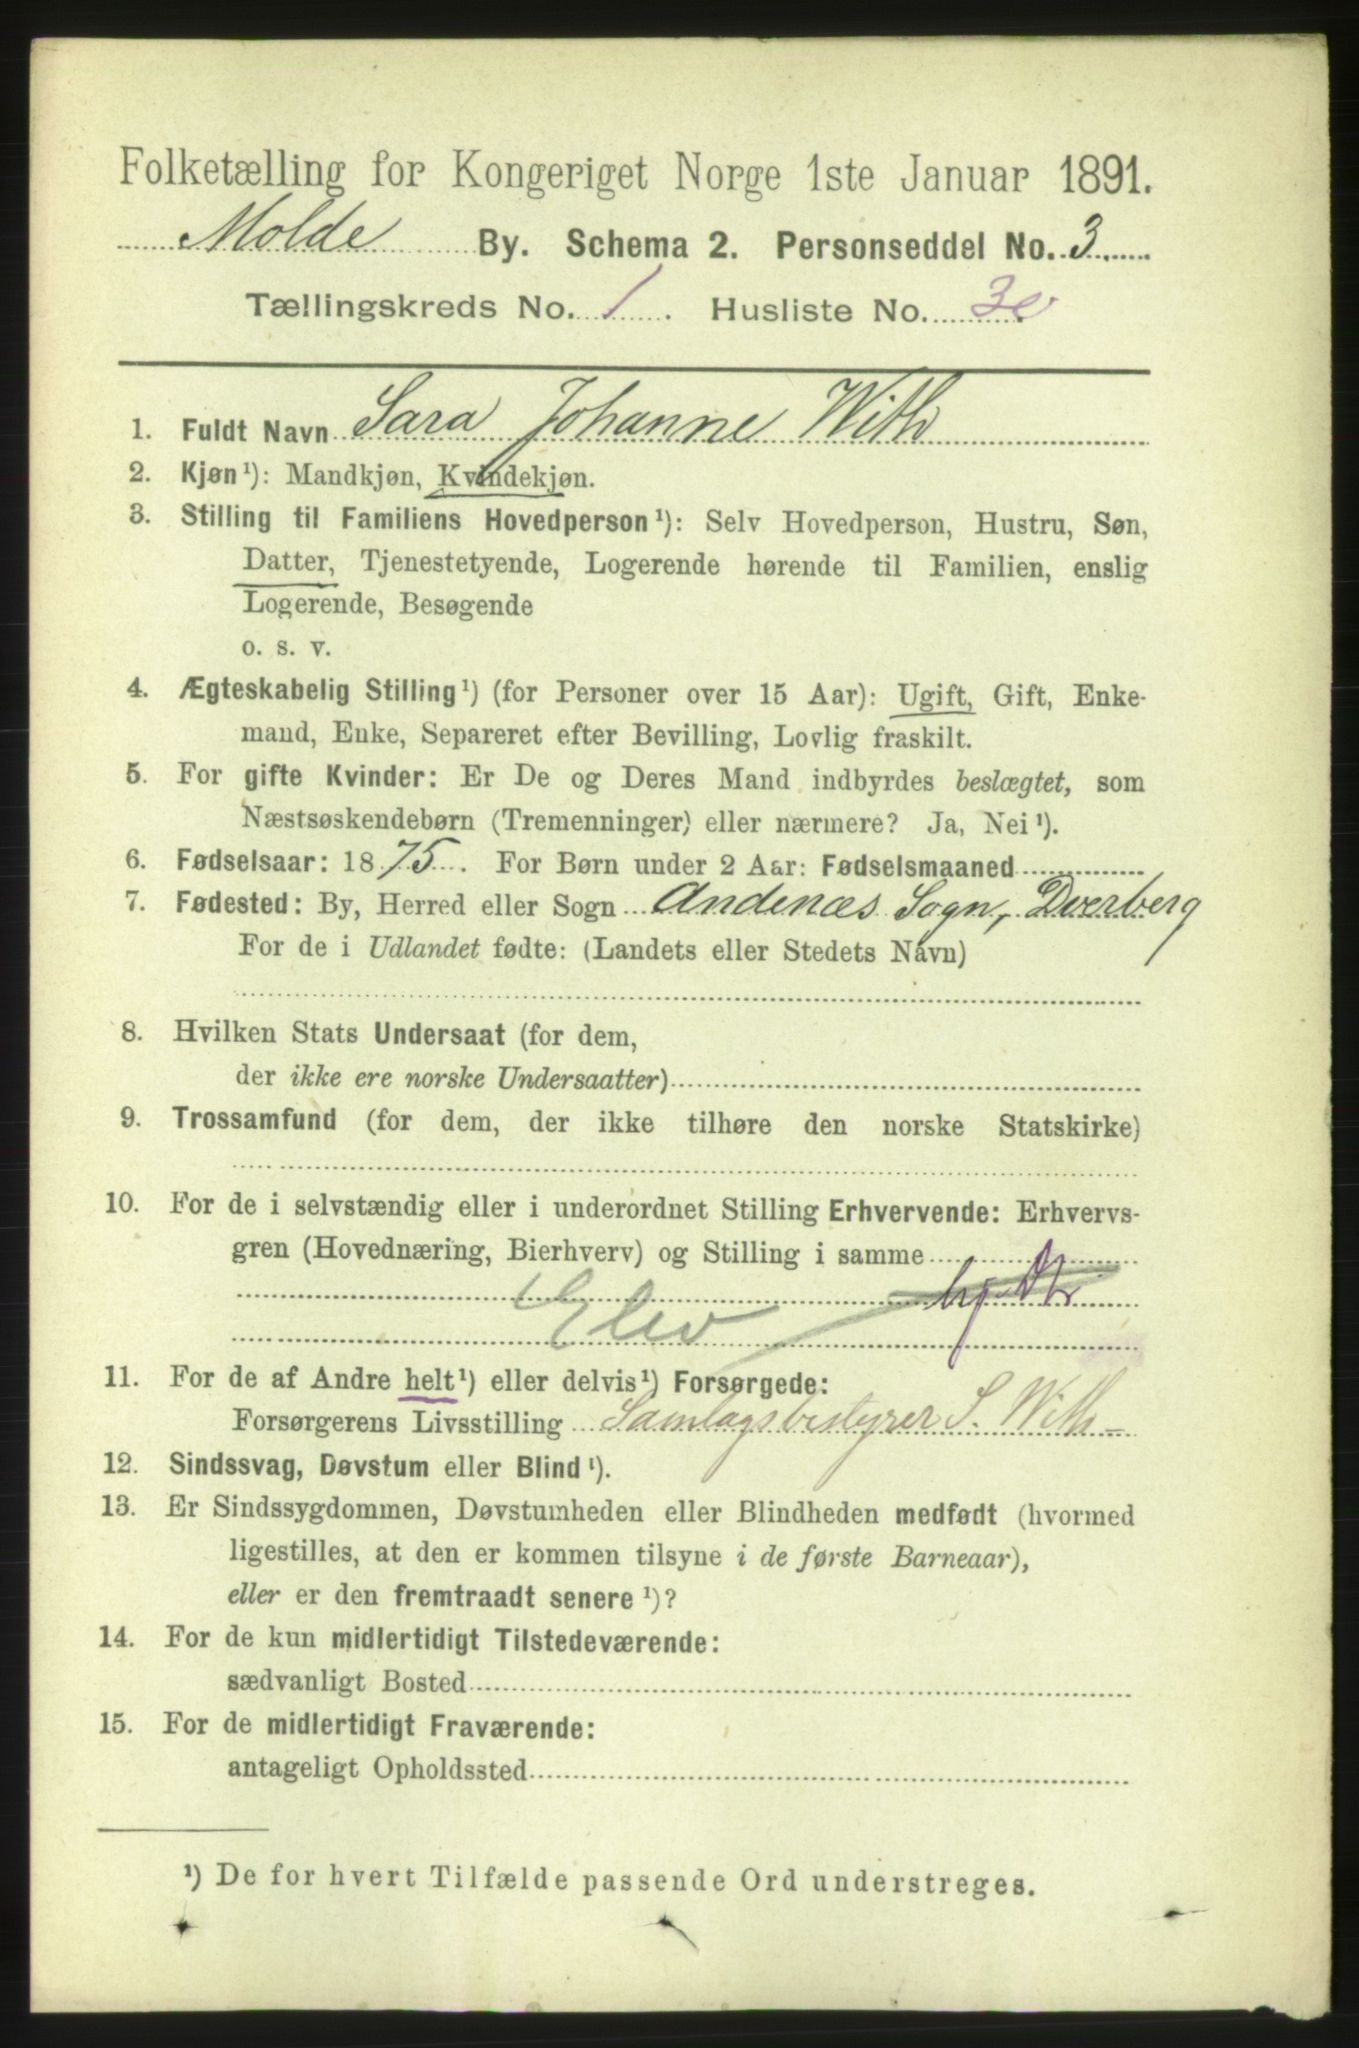 Folketælling for Kongeriget Norge 1ste Januar 1891.
Molde By. Schema 2. Personseddel No. 3
Tællingskreds No. 1. Husliste No. 30
1. Fuldt Navn Sara Johanne With
2. Kjøn¹): Mandkjøn, Kvindekjøn.
3. Stilling til Familiens Hovedperson¹): Selv Hovedperson, Hustru, Søn,
Datter, Tjenestetyende, Logerende hørende til Familien, enslig
Logerende, Besøgende
o. s. v.
4. Ægteskabelig Stilling¹) (for Personer over 15 Aar): Ugift, Gift, Enke-
mand, Enke, Separeret efter Bevilling, Lovlig fraskilt.
5. For gifte Kvinder: Er De og Deres Mand indbyrdes beslægtet, som
Næstsøskendebørn (Tremenninger) eller nærmere? Ja, Nei¹).
6. Fødselsaar: 1875. For Børn under 2 Aar: Fødselsmaaned
7. Fødested: By, Herred eller Sogn Andenæs Sogn, Dverberg
For de i Udlandet fødte: (Landets eller Stedets Navn)
8. Hvilken Stats Undersaat (for dem,
der ikke ere norske Undersaatter)
9. Trossamfund (for dem, der ikke tilhøre den norske Statskirke)
10. For de i selvstændig eller i underordnet Stilling Erhvervende: Erhvervs-
gren (Hovednæring, Bierhverv) og Stilling i samme
Elev
11. For de af Andre helt¹) eller delvis¹) Forsørgede:
Forsørgerens Livsstilling Samlagsbestyrer S. With
12. Sindssvag, Døvstum eller Blind¹).
13. Er Sindssygdommen, Døvstumheden eller Blindheden medfødt (hvormed
ligestilles, at den er kommen tilsyne i de første Barneaar),
eller er den fremtraadt senere¹)?
14. For de kun midlertidigt Tilstedeværende:
sædvanligt Bosted
15. For de midlertidigt Fraværende:
antageligt Opholdssted
¹) De for hvert Tilfælde passende Ord understreges.